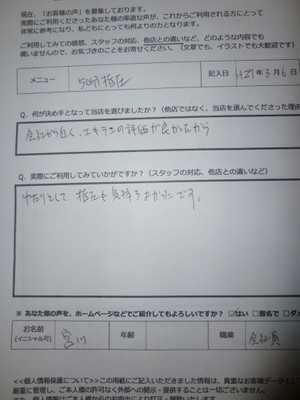 現在、「お客様の声」を募集しております。
実際にご利用くださったあなた様の率直な声が、これからご利用される方にとって
非常に参考になり、私どもにとっても何よりの力となります。
ご利用してみての感想、スタッフの対応、他店との違いなど、どのような内容でも
構いませんので、お気づきのことをお寄せください。（文章でも、イラストでも大歓迎です）
メニュー 50分指圧 記入日 H29年3月6日
Q. 何が決め手となって当店を選びましたか？（他店ではなく、当店を選んでくださった理由
会社から近く、エキテンの評価が良かったから
Q. 実際にご利用してみていかがですか？（スタッフの対応、他店との違いなど）
ゆったりとして、指圧も気持ちよかったです。
※ あなた様の声を、ホームページなどでご紹介してもよろしいですか？ ☑はい □匿名で □ダ
お名前 宮川 年齢 職業 会社員
(イニシャル可)
<<個人情報保護について>>この用紙にご記入いただきました情報は、貴重なお客様データと
厳重に管理し、ご本人様の許可なく外部への開示・提供することはございません。